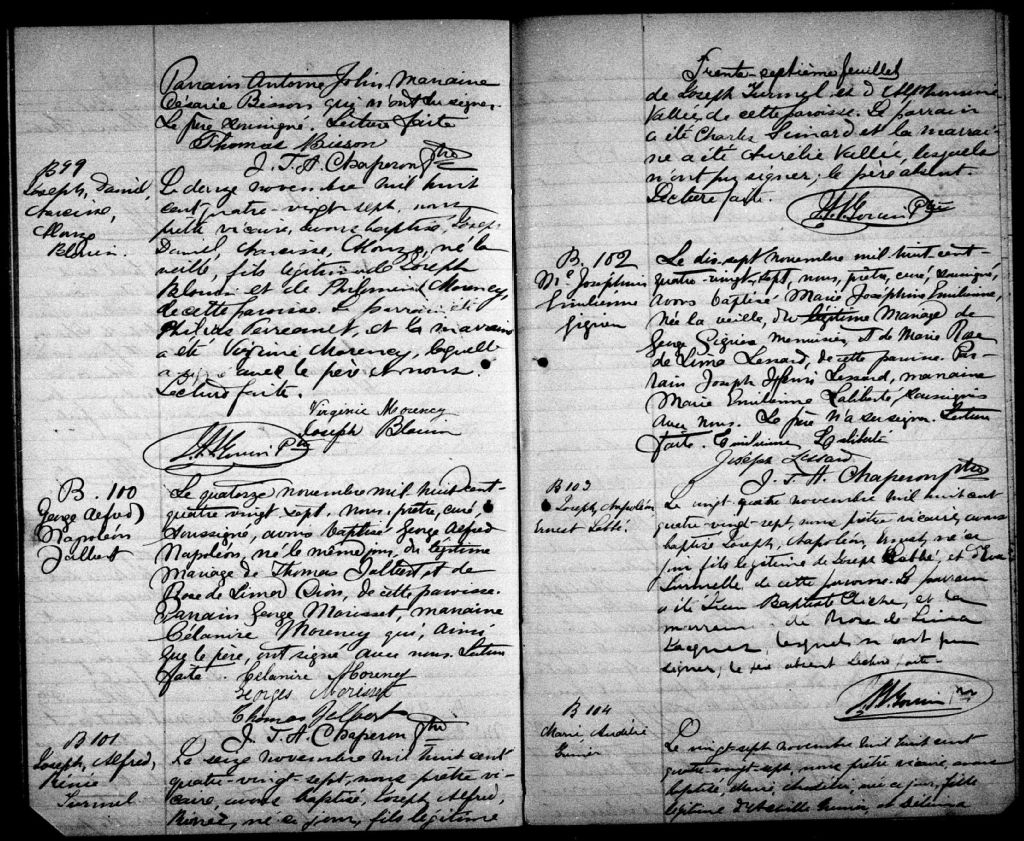 Parrain Antoine Jolin, Marraine
Césarie Bisson qui n'ont su signer.
Le père soussigné. Lecture faite
Thomas Bisson
J. T. A. Chaperon Ptre
B 99
Joseph, Daniel,
Narcisse,
Alonzo
Blouin.
Le douze novembre mil huit
cent quatre-vingt-sept, nous
prêtre vicaire, avons baptisé, Joseph
Daniel, Narcisse, Alonzo, né la
veille, fils légitime de Joseph
Blouin et de Philomène Morency,
de cette paroisse. Le parrain, a été
et la marraine
a été Virginie Morency, laquelle
a signé avec le père et nous.
Lecture faite.
Virginie Morency
Joseph Blouin
Ptre
B. 100
George Alfred
Napoléon
Jalbert
Le quatorze novembre mil huit cent-
quatre vingt sept, nous, prêtre, curé
soussigné, avons baptisé George Alfred
Napoléon, né le même jour, du légitime
Mariage de Thomas Jalbert et de
Rose de Lima Dion, de cette paroisse.
Parrain George Morisset, marraine
Célanire Morency qui, ainsi
que le père, ont signé avec nous. Lecture
faite. Célanire Morency
Georges Morisset
Thomas Jalbert
J. T. A. Chaperon Ptre
B 101
Joseph, Alfred,
Le seize novembre mil huit cent
quatre-vingt-sept, nous prêtre vi-
caire, avons baptisé, Joseph Alfred,
né ce jour, fils légitime
Trente-septième feuillet
de Joseph et d'Alphonsine
Vallée, de cette paroisse. Le parrain
a été Charles Simard et la marrai-
ne a été Aurélie Vallée, lesquels
n'ont pu signer; le père absent.
Lecture faite.
Ptre
B. 102
Me Joséphine
Emilienne
Gignac
Le dix-sept novembre mil huit cent-
quatre-vingt-sept, nous, prêtre, curé, soussigné,
avons baptisé Marie Joséphine Emilienne,
née la veille, du légitime Mariage de
George Gignac menuisier, et de Marie Rose
de Lima Lessard, de cette paroisse. Par-
rain Joseph Henri Lessard, marraine
Marie Emilienne Laliberté, soussignés
avec nous. Le père n'a su signer. Lecture
faite. Emilienne Laliberté
Joseph Lessard
J. T. A. Chaperon Ptre
B 103
Joseph, Napoléon,
Ernest
Le vingt quatre novembre mil huit cent
quatre-vingt-sept, nous prêtre vicaire, avons
baptisé Joseph, Napoléon, Ernest, né ce
jour fils légitime de Joseph et d'
de cette paroisse. Le parrain
a été Jean Baptiste Cliche, et la
marraine Rose de Lima
lesquels n'ont pu
signer, le père absent Lecture faite.
B 104
Marie,
Le vingt-sept novembre mil huit cent
quatre-vingt-sept, nous prêtre vicaire, avons
baptisé, Marie, née ce jour, fille
légitime d'Achille et